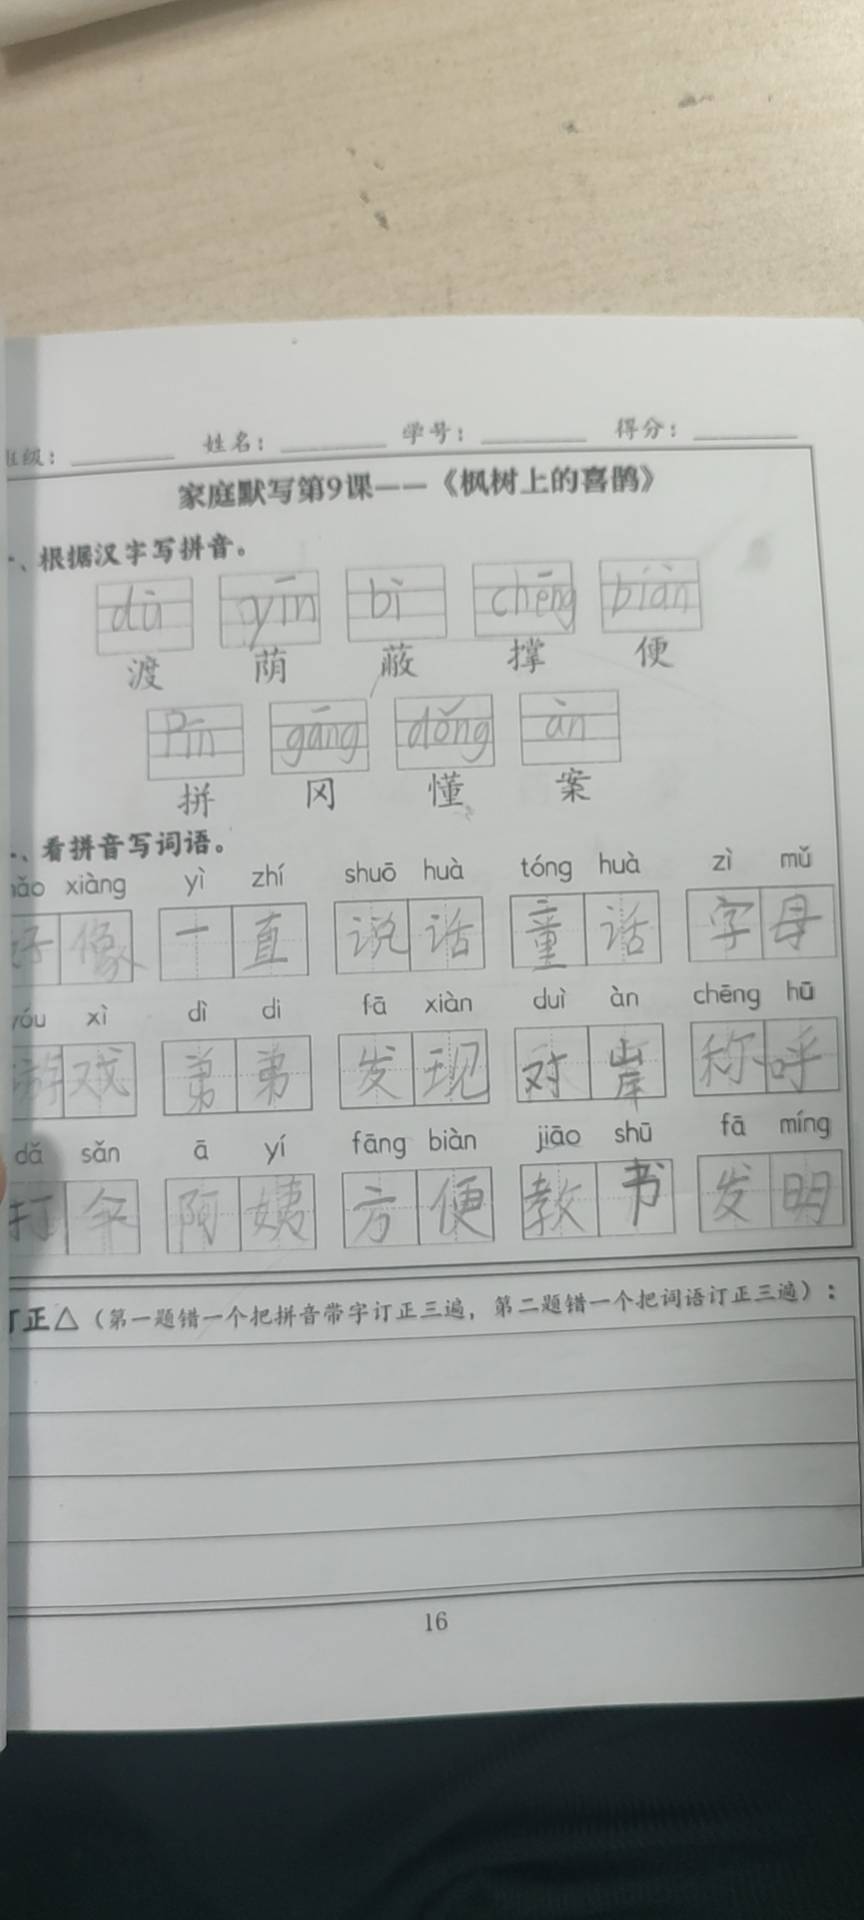 班级： 姓名： 学号： 得分：
家庭默写第9课——《枫树上的喜鹊》
一、根据汉字写拼音。
dù yīn bì chēng biàn
渡 荫 蔽 撑 便
Pīn gāng dǒng àn
拼 冈 懂 案
二、看拼音写词语。
hǎo xiàng yì zhí shuō huà tóng huà zì mǔ
好像 一直 说话 童话 字母
yóu xì dì di fā xiàn duì àn chēng hū
游戏 弟弟 发现 对岸 称呼
dǎ sǎn ā yí fāng biàn jiāo shū fā míng
打伞 阿姨 方便 教书 发明
订正△（第一题错一个把拼音带字订正三遍，第二题错一个把词语订正三遍）：
16